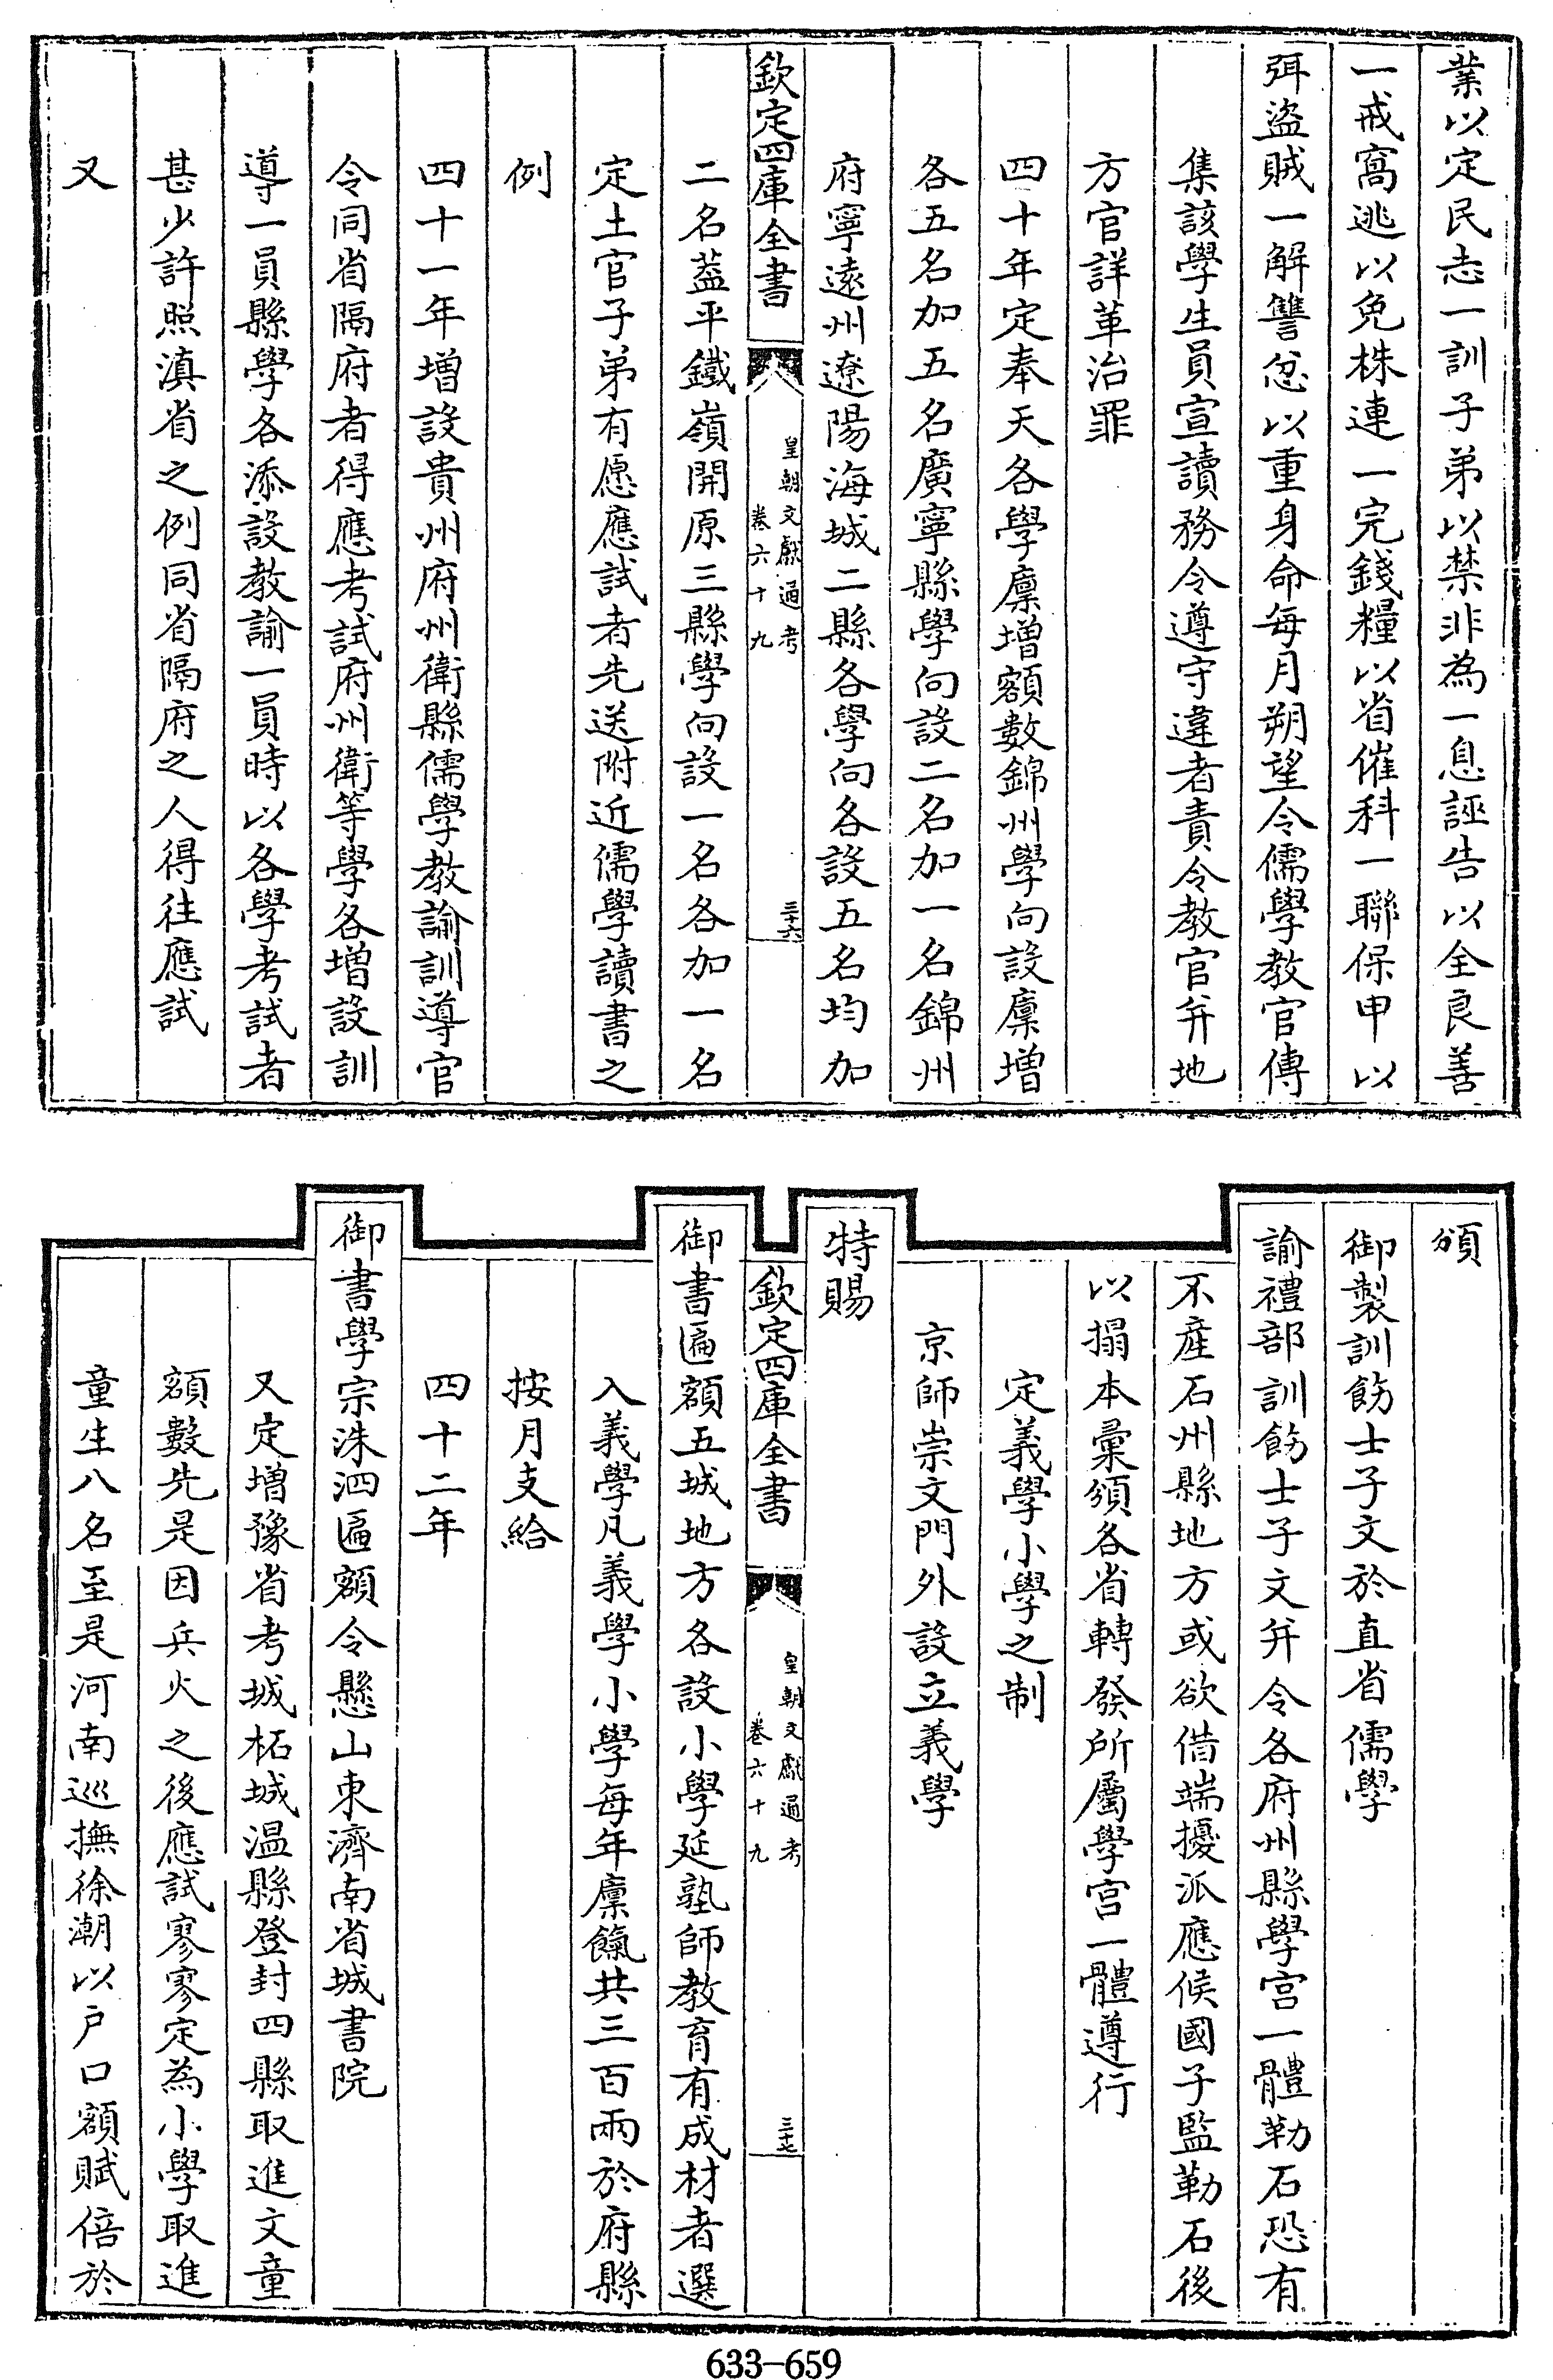 業以定民志一訓子弟以禁非為一息誣告以全良善
一戒窩逃以免株連一完錢糧以省催科一聯保甲以
弭盜賊一解讐忿以重身命每月朔望令儒學教官傳
集該學生員宣讀務令遵守違者責令教官并地
方官詳革治罪
四十年定奉天各學廩增額數錦州學向設廩增
各五名加五名廣寧縣學向設二名加一名錦州
府寧遠州遼陽海城二縣各學向各設五名均加
欽定四庫全書
皇朝文獻通考
卷六十九
三十六
二名蓋平鐵嶺開原三縣學向設一名各加一名
定土官子弟有愿應試者先送附近儒學讀書之
例
四十一年增設貴州府州衛縣儒學教諭訓導官
令同省隔府者得應考試府州衛等學各增設訓
導一員縣學各添設教諭一員時以各學考試者
甚少許照滇省之例同省隔府之人得往應試
又
頒
御製訓飭士子文於直省儒學
諭禮部訓飭士子文并令各府州縣學宮一體勒石恐有
不產石州縣地方或欲借端擾派應候國子監勒石後
以搨本彙頒各省轉發所屬學宮一體遵行
定義學小學之制
京師崇文門外設立義學
特賜
欽定四庫全書
皇朝文獻通考
卷六十九
三十七
御書匾額五城地方各設小學延塾師教育有成材者選
入義學凡義學小學每年廩餼共三百兩於府縣
按月支給
四十二年
御書學宗洙泗匾額令懸山東濟南省城書院
又定增豫省考城柘城温縣登封四縣取進文童
額數先是因兵火之後應試寥寥定為小學取進
童生八名至是河南巡撫徐潮以户口額賦倍於
633-659